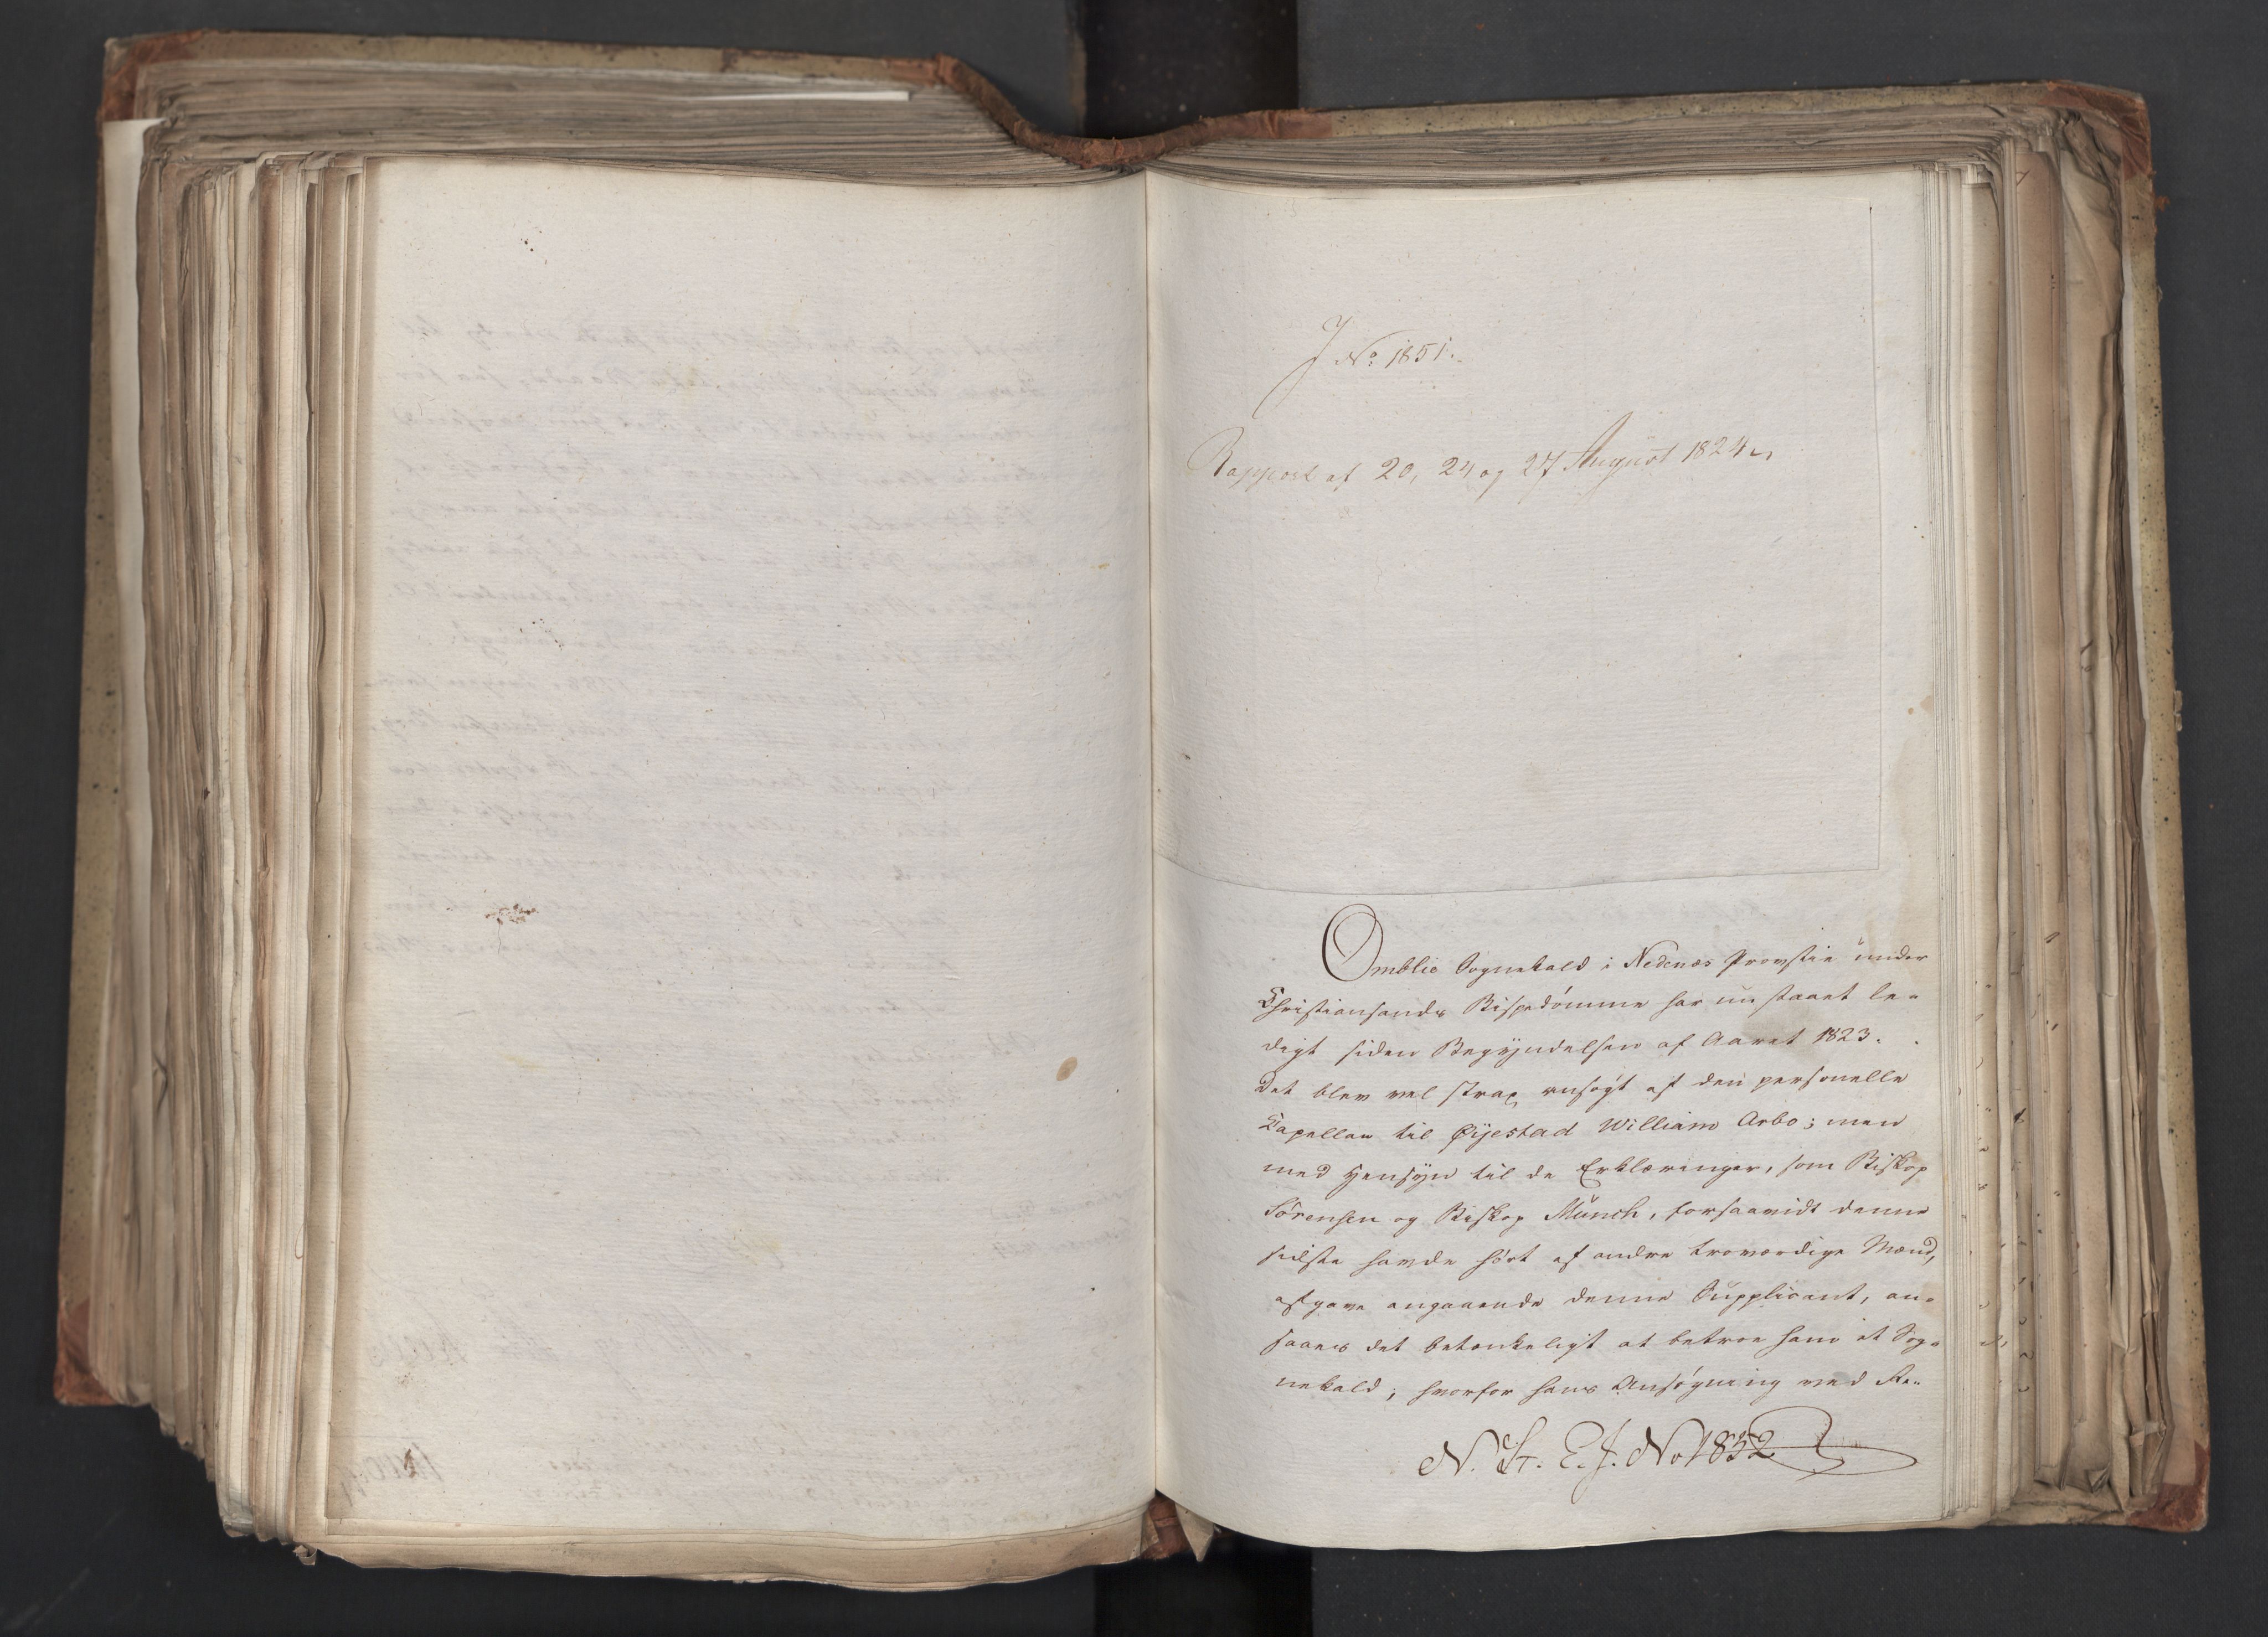 J No: 1851.
Rapport af 20, 24 og 27 August 1824
Omblie Sognekald i Nedenæs Provstie under
Christiansands Bispedömme har nu staaet le-
digt siden Begyndelsen af Aaret 1823.
Det blev vel strax ansögt af den personelle
Capellan til Øijestad William Arbo; men
med Hensyn til de Erklæringer, som Biskop
Sörensen og Biskop Münch, forsaavidt denne
sidste havde hört af andre troværdige Mænd,
afgave angaaende denne Supplicant, an-
saaes det betænkeligt at betroe ham et Sog-
nekald; hvorfor hans Ansögning ved Re-
N. St. E. J. No 1852